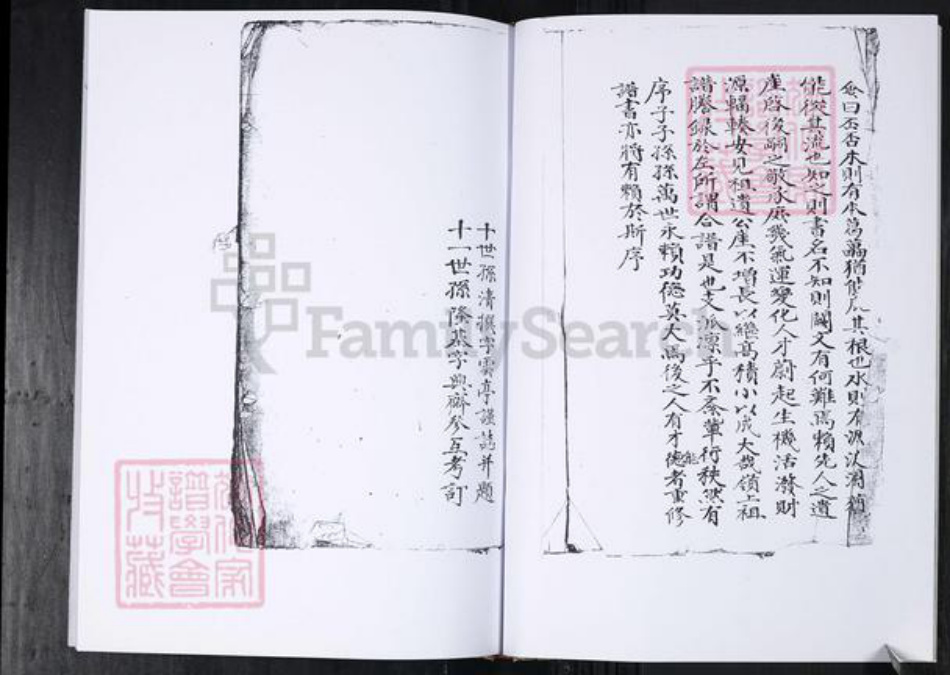 僉曰否否木則有本葛藟猶能庇其根也水則有源汲溯
能從其流也知之則書名不知則闕文有何難焉賴先人之遺
產啓後嗣之敬承庶幾氣運變化人才蔚起生機活潑財
源輻輳女見祖遺公產不增長以繼高積小以成大哉嶺上祖
譜謄錄於左所謂合譜是也支派凛乎不紊輩行秩然有
序子子孫孫萬世永賴功德莫大焉後之人有才德能者重修
譜書亦將有賴於斯序
十世孫清撰字雲亭謹誌并題
十一世孫隆基字興齋參互考訂
FamilySearch
譜學會
收藏